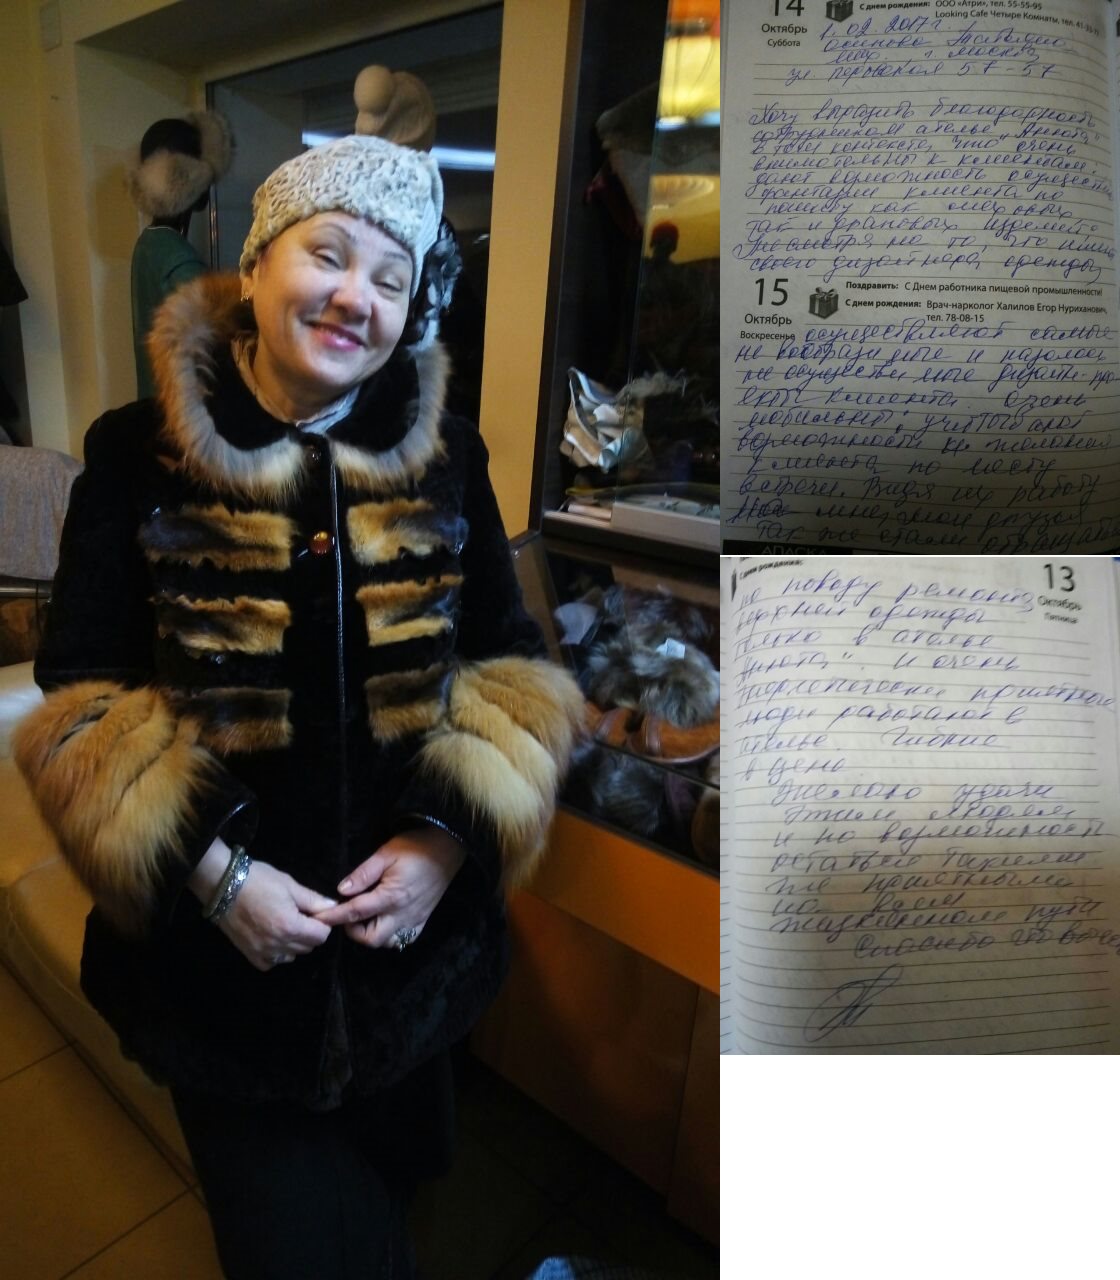 14
Октябрь
Суббота
С днем рождения: ООО «Атри», тел. 55-55-95
Looking Cafe Четыре Комнаты, тел.
1.02.2017 г.
г. Москва
ул. 57-57
Хочу выразить благодарность
сотрудникам ателье "Анюта"
в том контексте, что очень
внимательны к клиентам,
дают возможность осуществ
фантазии клиента по
пошиву как меховых
так и драповых изделий.
Несмотря на то, что имея
своего дизайнера одежды,
15
Октябрь
Воскресенье
Поздравить: С Днем работника пищевой промышленности!
С днем рождения: Врач-нарколог Халилов Егор Нуриханович,
тел. 78-08-15
осуществляют самые
не вообразимые и казалось
не осуществимые дизайн-про
екты клиента. очень
мобильны, учитывают
возможности и желания
клиента по месту
встречи. Видя их работу
на мне, мои друзья
так же стали обращаться
С днем рождения:
13
Октябрь
Пятница
по поводу ремонта
верхней одежды
только в ателье
"Анюта". И очень
энергетически приятные
люди работают в
ателье. Гибкие
в цене
Желаю удачи
этим людям
и по возможности
остаться такими
же приятными
на всем
жизненном пути
Спасибо что вы